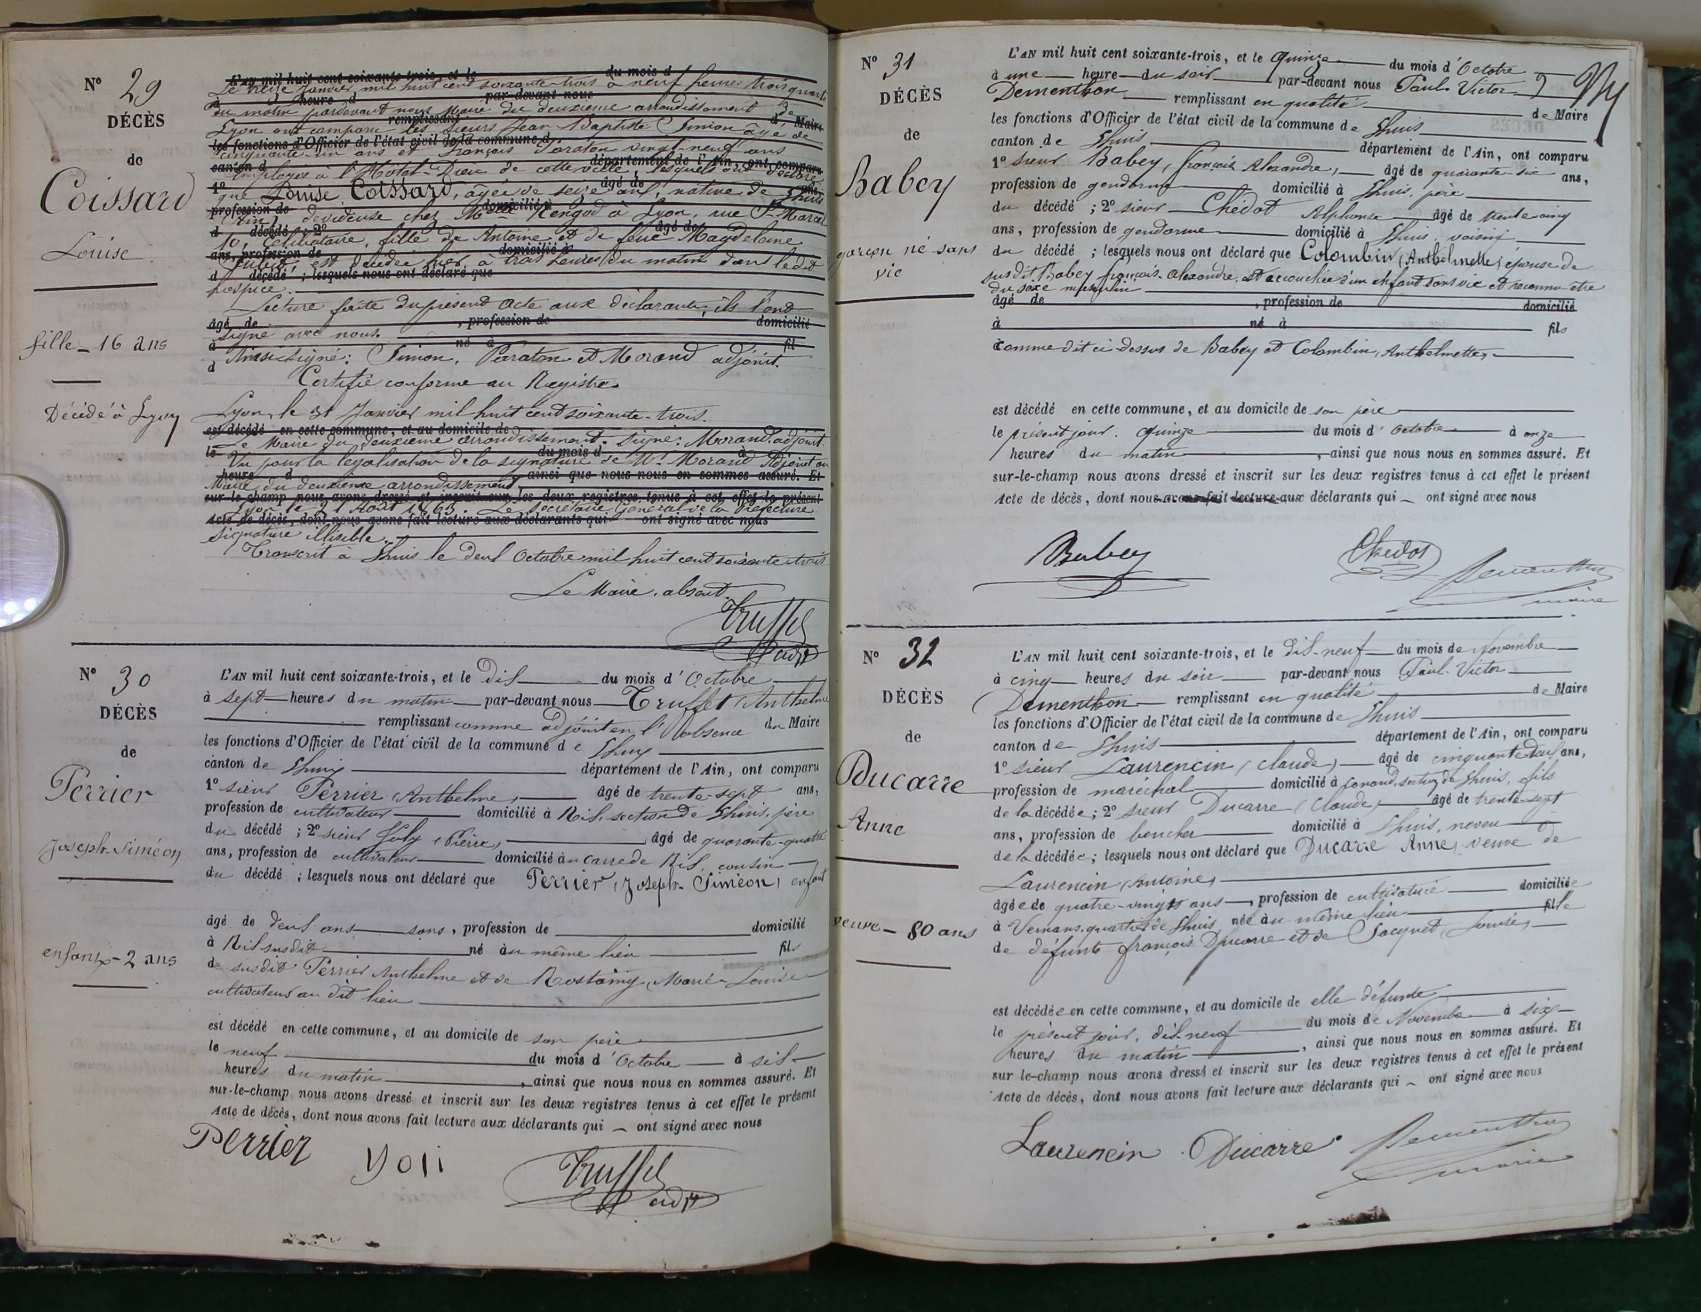 N° 29
DÉCÈS
de
Coissard
Louise
fille - 16 ans
Décédé à Lyon
L'AN mil huit cent soixante-trois, et le du mois d
Le treize Janvier mil huit cent soixante-trois à neuf heures trois quarts
du matin pardevant nous Maire du deuxième arrondissement de
Lyon ont comparu les sieurs Jean Baptiste Simion âgé de
cinquante un ans et François Paraton vingt-neuf ans
employés à l'Hotel-Dieu de cette ville, lesquels ont déclaré
que Louise Coissard, âgée de seize ans, native de Lhuis
(Ain) devideuse chez Melle Rengod à Lyon, rue St Marcel
10, Célibataire, fille de Antoine et de feue Magdelaine
est décédée hier, à trois heures du matin dans ledit
hospice.
Lecture faite du présent acte aux déclarants, ils l'ont
signé avec nous.
Ainsi signé: Simion, Paraton et Morand adjoint.
Certifié conforme au Registre
Lyon, le 31 Janvier mil huit cent soixante-trois.
Le Maire du deuxième arrondissement. Signé: Morand, adjoint
Vu pour la légalisation de la signature de Mr Morand Adjoint au
Maire du deuxième arrondissement,
Lyon le 21 Août 1863. Le Secrétaire Général de la Préfecture
Signature illisible.
Transcrit à Lhuis le deux Octobre mil huit cent soixante-trois
Le Maire, absent.
Truffet
adjt
N° 30
DÉCÈS
de
Perrier
Joseph-Siméon
enfant - 2 ans
L'AN mil huit cent soixante-trois, et le dix du mois d'Octobre
à sept heures du matin par-devant nous Truffet Anthelme
remplissant comme adjoint en l'absence du Maire
les fonctions d'Officier de l'état civil de la commune de Lhuis
canton de Lhuis département de l'Ain, ont comparu
1° sieur Perrier (Anthelme) âgé de trente-sept ans,
profession de cultivateur domicilié à Rix section de Lhuis, père
du décédé ; 2° sieur Joly (Pierre) âgé de quarante-quatre
ans, profession de cultivateur domicilié au carre de Rix, cousin
du décédé ; lesquels nous ont déclaré que Perrier (Joseph-Siméon) enfant
âgé de deux ans sans, profession de domicilié
à Rix susdit né au même lieu fils
de susdit Perrier Anthelme et de Rostaing Marie-Louise
cultivateurs au dit lieu
est décédé en cette commune, et au domicile de son père
le neuf du mois d'Octobre à six
heures du matin, ainsi que nous nous en sommes assuré. Et
sur-le-champ nous avons dressé et inscrit sur les deux registres tenus à cet effet le présent
acte de décès, dont nous avons fait lecture aux déclarants qui ont signé avec nous
Perrier
Joli
Truffet
adjt
N° 31
DÉCÈS
de
Babey
garçon né sans
vie
L'AN mil huit cent soixante-trois, et le quinze du mois d'Octobre
à une heure du soir par-devant nous Paul-Victor
Dementhon remplissant en qualité de Maire
les fonctions d'Officier de l'état civil de la commune de Lhuis
canton de Lhuis département de l'Ain, ont comparu
1° sieur Babey, (françois Alexandre), âgé de quarante six ans,
profession de gendarme domicilié à Lhuis, père
du décédé ; 2° sieur Chédot Alphonse âgé de trente cinq
ans, profession de gendarme domicilié à Lhuis, voisin
du décédé ; lesquels nous ont déclaré que Colombin (Anthelmette) épouse de
susdit Babey françois-alexandre, est accouchée d'un enfant sans vie et reconnu être
du sexe masculin
âgé de , profession de domicilié
à né à fils
comme dit ci-dessus de Babey et Colombin, Anthelmette
est décédé en cette commune, et au domicile de son père
le présent jour, quinze du mois d'octobre à onze
heures du matin, ainsi que nous nous en sommes assuré. Et
sur-le-champ nous avons dressé et inscrit sur les deux registres tenus à cet effet le présent
acte de décès, dont nous avons fait lecture aux déclarants qui ont signé avec nous
Babey
Chédot
Dementhon
maire
N° 32
DÉCÈS
de
Ducarre
Anne
veuve - 80 ans
L'AN mil huit cent soixante-trois, et le dix-neuf du mois de Novembre
à cinq heures du soir par-devant nous Paul-Victor
Dementhon remplissant en qualité de Maire
les fonctions d'Officier de l'état civil de la commune de Lhuis
canton de Lhuis département de l'Ain, ont comparu
1° sieur Laurencin (Claude) âgé de cinquante deux ans,
profession de maréchal domicilié à section de Lhuis, fils
de la décédée ; 2° sieur Ducarre (Claude) âgé de trente-sept
ans, profession de boucher domicilié à Lhuis, neveu
de la décédée ; lesquels nous ont déclaré que Ducarre Anne, veuve de
Laurencin (antoine)
âgée de quatre-vingts ans, profession de cultivatrice domiciliée
à Vernans, quartier de Lhuis née au même lieu fille
de défunts françois Ducarre et de Jacquet (Louise)
est décédée en cette commune, et au domicile de elle défunte
le présent jour, dix neuf du mois de Novembre à six
heures du matin, ainsi que nous nous en sommes assuré. Et
sur le-champ nous avons dressé et inscrit sur les deux registres tenus à cet effet le présent
acte de décès, dont nous avons fait lecture aux déclarants qui ont signé avec nous
Laurencin
Ducarre
Dementhon
maire